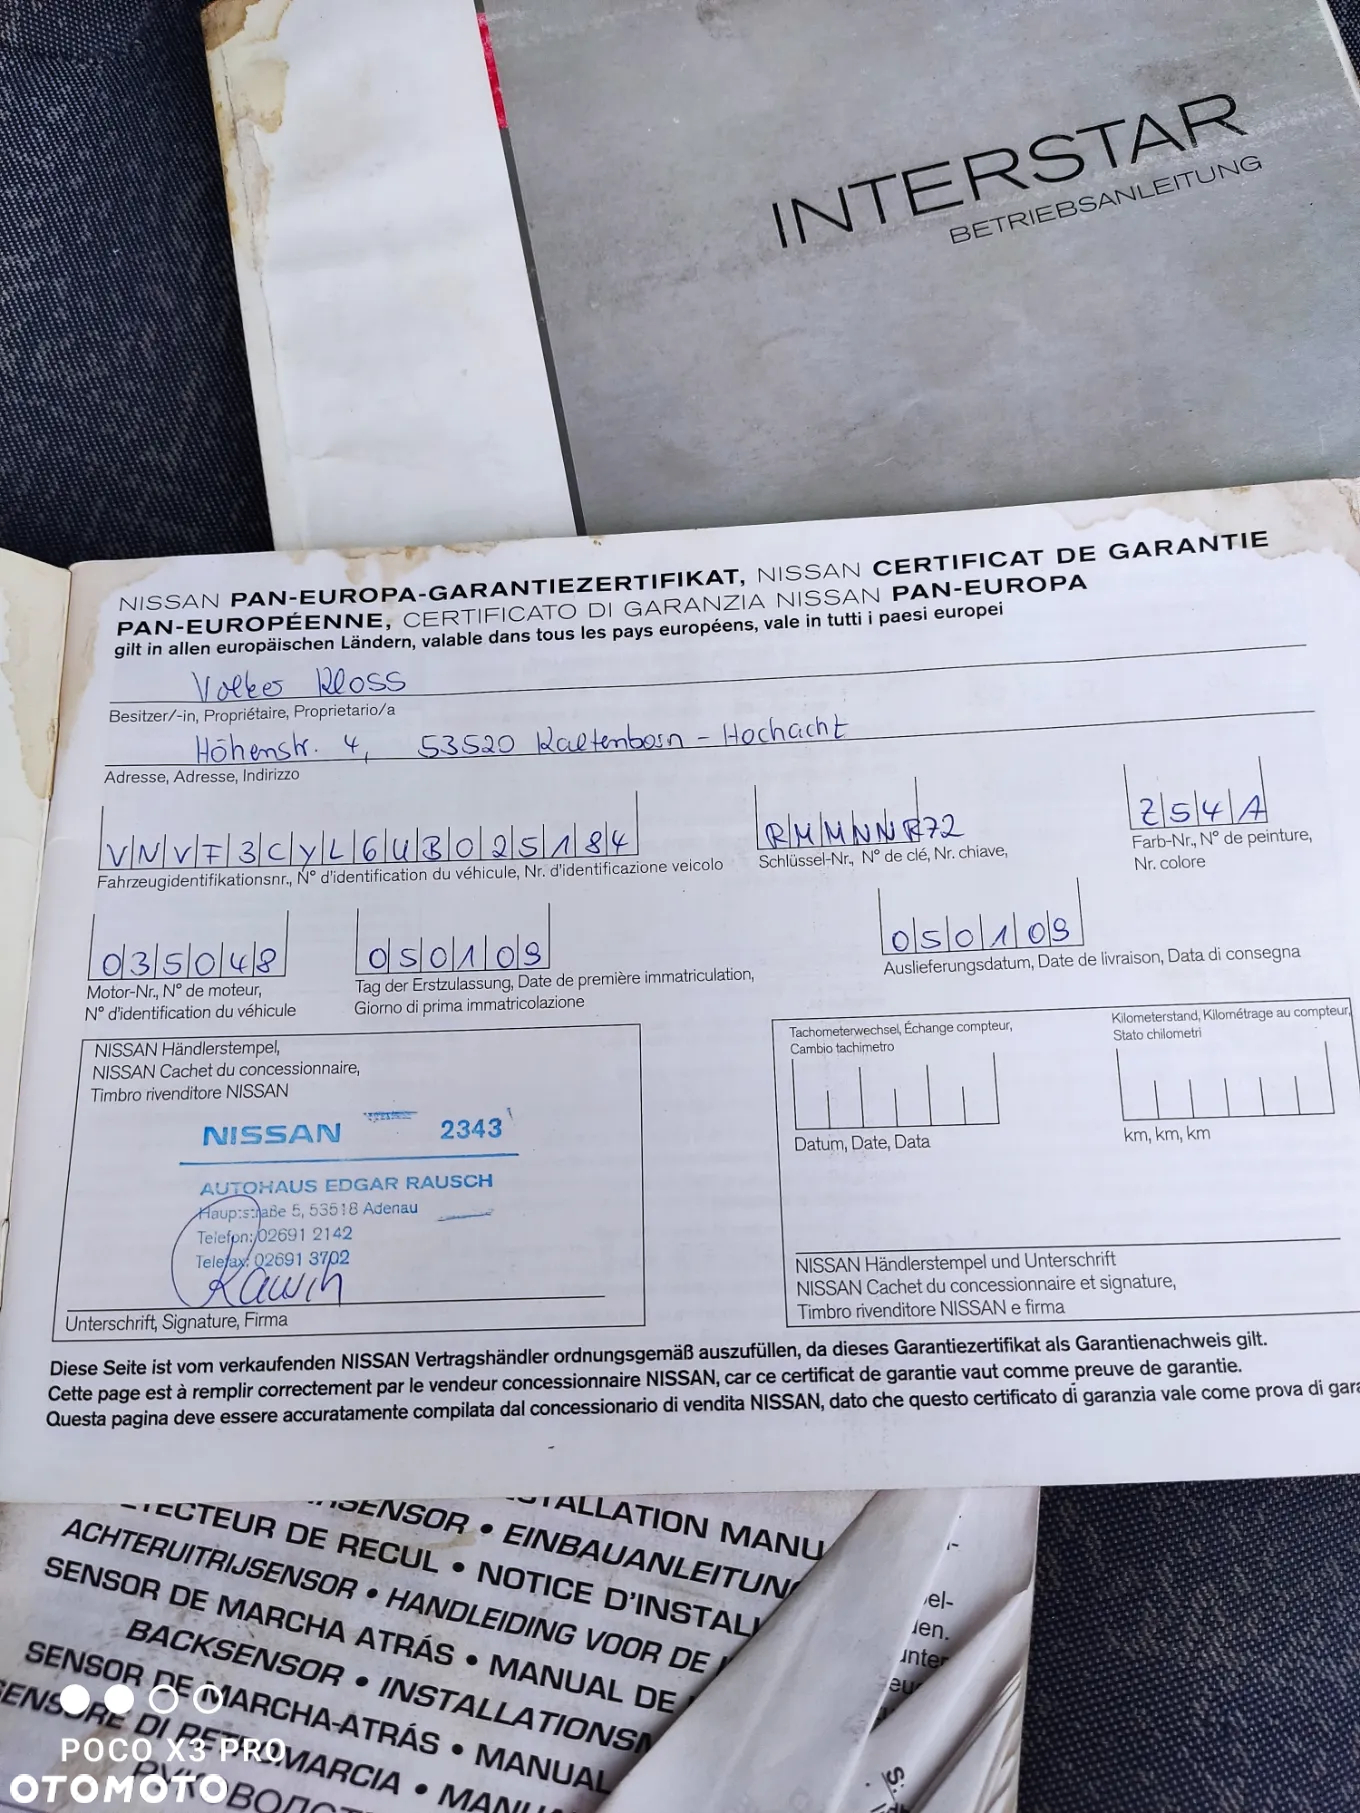 INTERSTAR
BETRIEBSANLEITUNG
NISSAN PAN-EUROPA-GARANTIEZERTIFIKAT, NISSAN CERTIFICAT DE GARANTIE
PAN-EUROPÉENNE, CERTIFICATO DI GARANZIA NISSAN PAN-EUROPA
gilt in allen europäischen Ländern, valable dans tous les pays européens, vale in tutti i paesi europei
Volker Kloss
Besitzer/-in, Propriétaire, Proprietario/a
Höhenstr. 4, 53520 Kaltenborn - Hochacht
Adresse, Adresse, Indirizzo
VNVF3CYL6UB025184
Fahrzeugidentifikationsnr., N° d'identification du véhicule, Nr. d'identificazione veicolo
RMMNNR72
Schlüssel-Nr., N° de clé, Nr. chiave,
Z54A
Farb-Nr., N° de peinture,
Nr. colore
035048
Motor-Nr., N° de moteur,
N° d'identification du véhicule
050109
Tag der Erstzulassung, Date de première immatriculation,
Giorno di prima immatricolazione
050109
Auslieferungsdatum, Date de livraison, Data di consegna
NISSAN Händlerstempel,
NISSAN Cachet du concessionnaire,
Timbro rivenditore NISSAN
NISSAN 2343
AUTOHAUS EDGAR RAUSCH
Hauptstraße 5, 53518 Adenau
Telefon: 02691 2142
Telefax: 02691 3702
Rausch
Unterschrift, Signature, Firma
Tachometerwechsel, Échange compteur,
Cambio tachimetro
Kilometerstand, Kilométrage au compteur,
Stato chilometri
Datum, Date, Data
km, km, km
NISSAN Händlerstempel und Unterschrift
NISSAN Cachet du concessionnaire et signature,
Timbro rivenditore NISSAN e firma
Diese Seite ist vom verkaufenden NISSAN Vertragshändler ordnungsgemäß auszufüllen, da dieses Garantiezertifikat als Garantienachweis gilt.
Cette page est à remplir correctement par le vendeur concessionnaire NISSAN, car ce certificat de garantie vaut comme preuve de garantie.
Questa pagina deve essere accuratamente compilata dal concessionario di vendita NISSAN, dato che questo certificato di garanzia vale come prova di gara
TALLATION MANU
SENSOR • EINBAUANLEITUNG
TECTEUR DE RECUL • NOTICE D'INSTALL
ACHTERUITRIJSENSOR • HANDLEIDING VOOR DE
SENSOR DE MARCHA ATRÁS • MANUAL DE
BACKSENSOR • INSTALLATIONSM
SENSOR DE MARCHA-ATRÁS • MANUAL
SENSORE DI RETROMARCIA • MANU
el-
en.
unter
eu
POCO X3 PRO
OTOMOTO